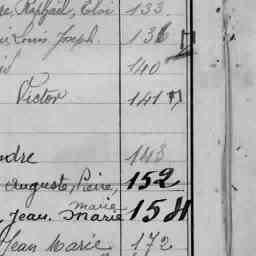 Raphaël, Eloi 133
Louis, Joseph. 136
140
Victor 141
143
Auguste, Pierre, 152
marie
Jean. Marie 154
Jean Marie 172